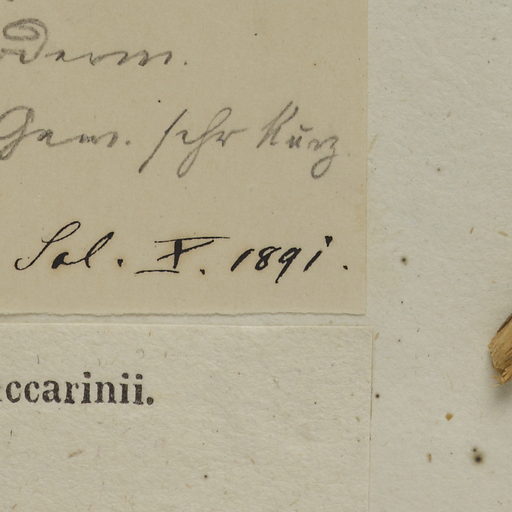 derm.
Gew. sehr kurz
Sol. X. 1891.
ccarinii.